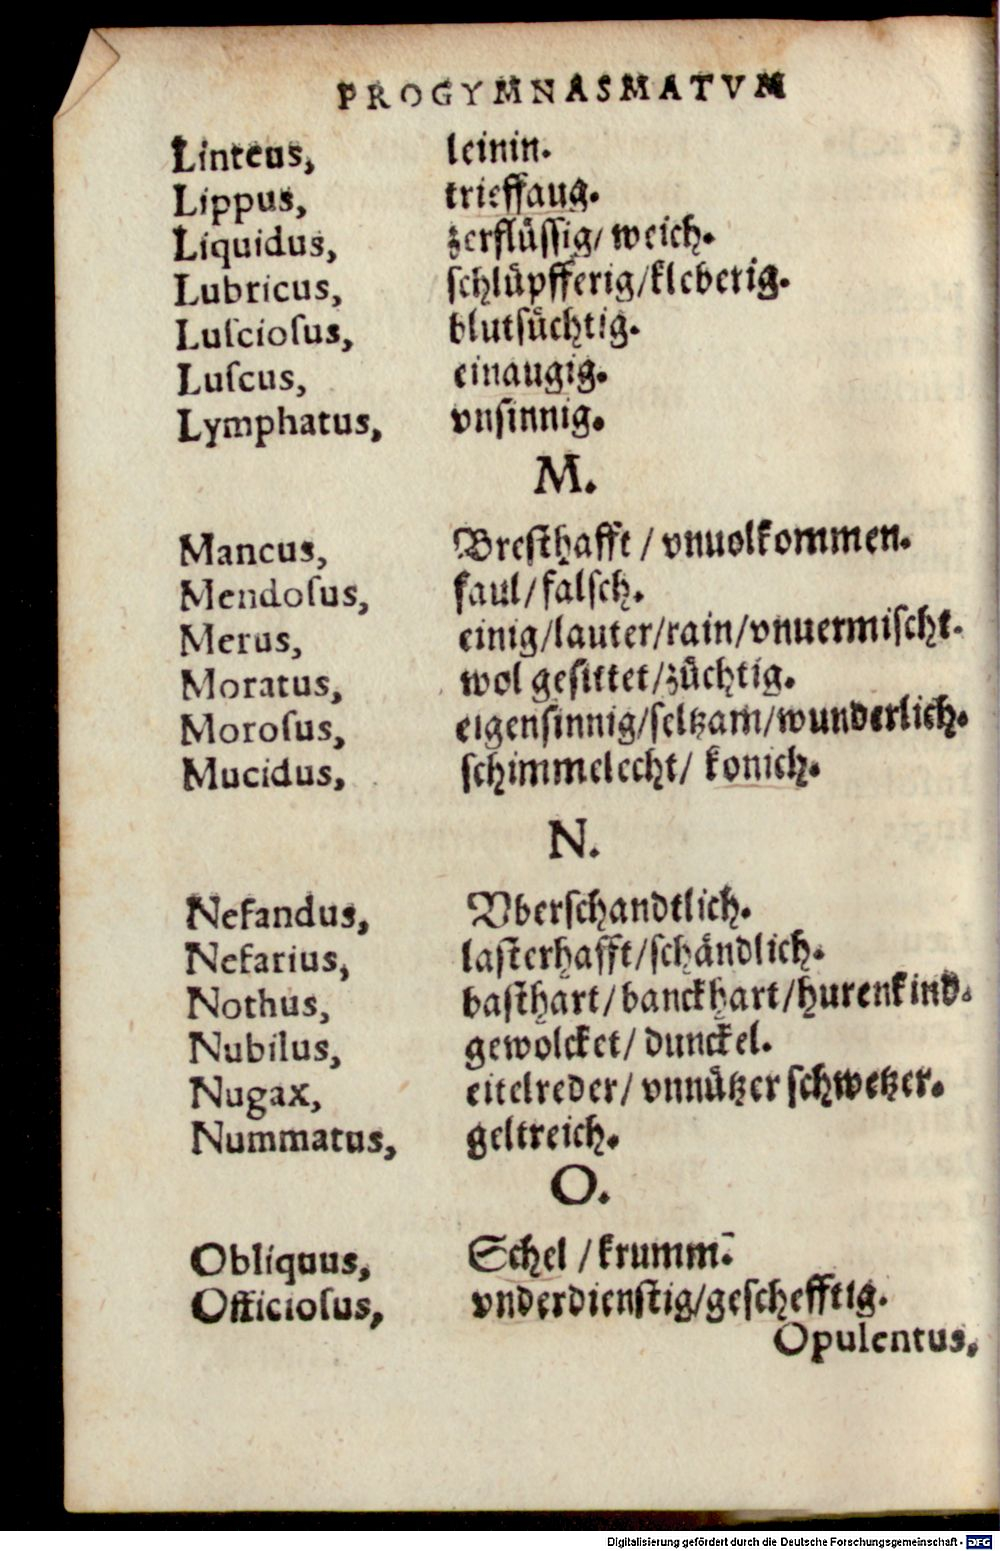 PROGYMNASMATVM
Linteus, leinin.
Lippus, trieffaug.
Liquidus, zerflüſſig/ weich.
Lubricus, ſchlüpfferig/kleberig.
Luſcioſus, blutſüchtig.
Luſcus, einaugig.
Lymphatus, vnſinnig.
M.
Mancus, Breſthafft / vnuolkommen.
Mendoſus, faul/falſch.
Merus, einig/lauter/rain/vnuermiſcht.
Moratus, wol geſittet/züchtig.
Moroſus, eigenſinnig/ſeltzam/wunderlich.
Mucidus, ſchimmelecht/ konich.
N.
Nefandus, Vberſchandtlich.
Nefarius, laſterhafft/ſchändlich.
Nothus, baſthart/banckhart/hurenkind.
Nubilus, gewolcket/ dunckel.
Nugax, eitelreder/ vnnützer ſchwetzer.
Nummatus, geltreich.
O.
Obliquus, Schel /krumm.
Officioſus, vnderdienſtig/geſchefftig.
Opulentus,
Digitalisierung gefördert durch die Deutsche Forschungsgemeinschaft - DFG